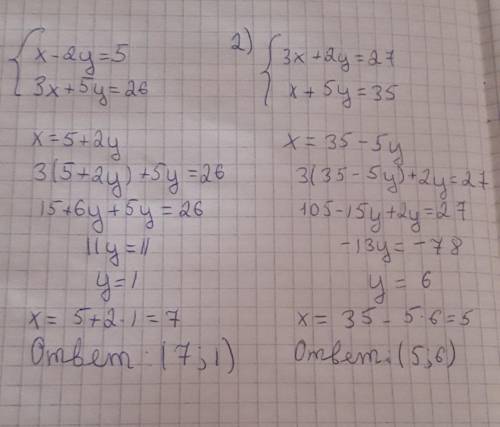 x-2y=5
3x+5y=26
x=5+2y
3(5+2y)+5y=26
15+6y+5y=26
11y=11
y=1
x=5+2·1=7
Ответ: (7;1)
2) 3x+2y=27
x+5y=35
x=35-5y
3(35-5y)+2y=27
105-15y+2y=27
-13y=-78
y=6
x=35-5·6=5
Ответ: (5;6)